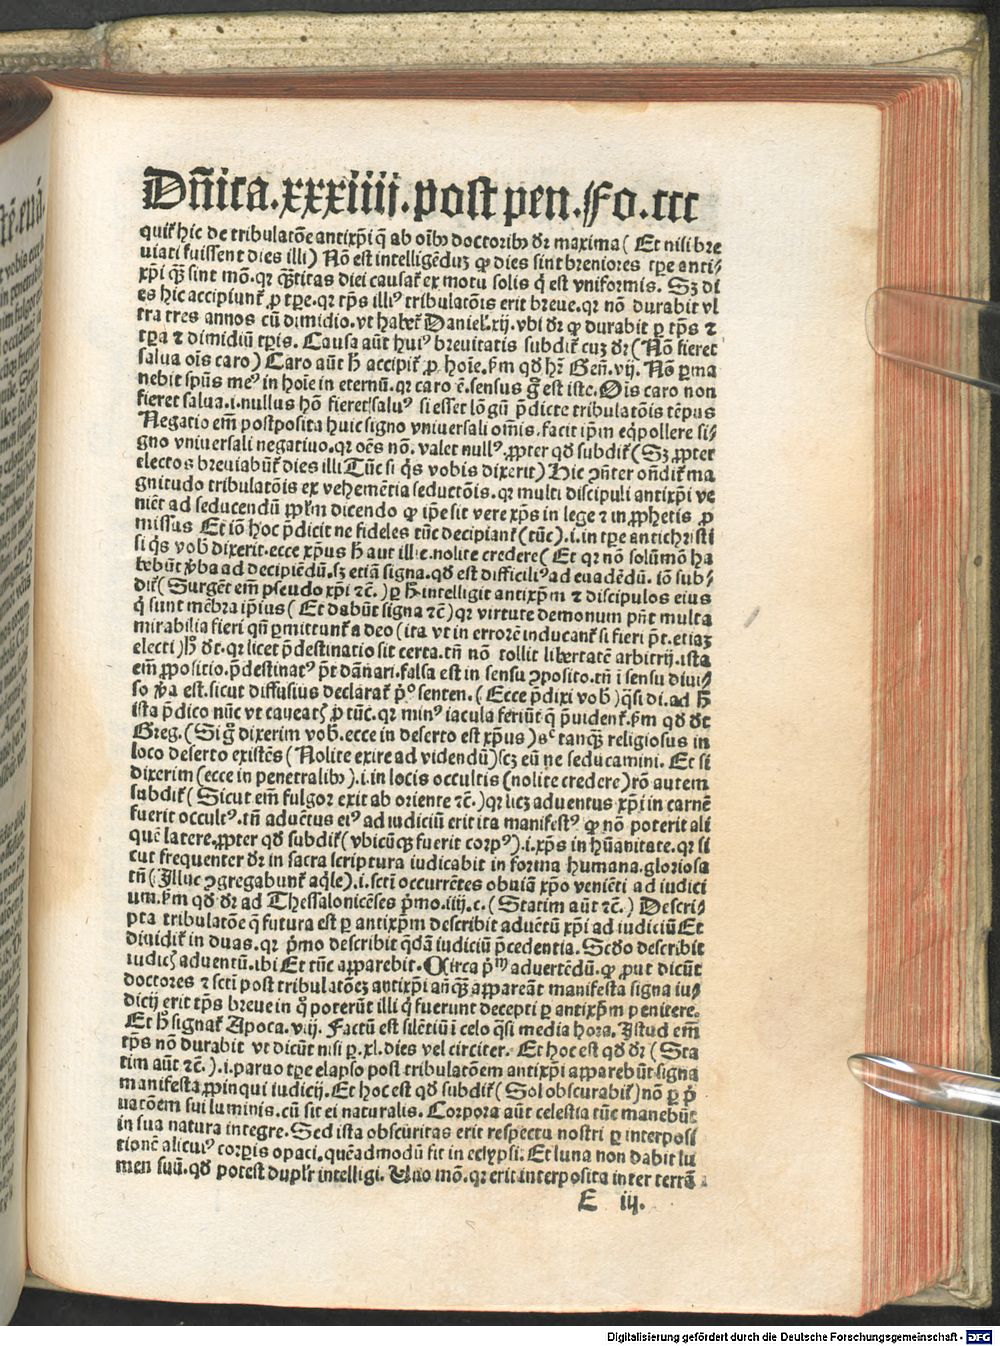 Dñica.xxxiiii.post pen.Fo.ccc
quit̃ hic de tribulatõe antixp̃i q̃ ab oĩbꝰ doctoribꝰ dr̃ maxima ( Et nisi bre
uiati fuissent dies illi ) Nõ est intelligẽduz ꝙ dies sint breniores tp̃e anti⸗
xp̃i qꝙ̃ sint mõ.qr q̃ntitas diei causat̃ ex motu solis q̇ est vniformis. Sz di
es hic accipiunt̃ ꝓ tp̃e.qr tp̃s illiꝰ tribulatõis erit breue.qr nõ durabit vl
tra tres annos cũ dimidio.vt habet̃ Daniel̃.xij.vbi dr̃ ꝙ durabit ꝑ tp̃s ⁊
tp̃a ⁊ dimidiũ tp̃is. Causa aũt huiꝰ breuitatis subdit̃ cuz dr̃ ( Nõ fieret
salua oĩs caro ) Caro aũt h̃ accipit̃ ꝓ hoĩe.ẜm qd̃ hr̃ Gen̄.vij. Nõ ꝑma
nebit spũs meꝰ in hoĩe in eternũ.qr caro ẽ.sensus g̃ est iste. Oĩs caro non
fieret salua.i.nullus hõ fieret saluꝰ si esset lõgũ p̃dicte tribulatõis tẽpus
Negatio em̃ postposita huic signo vniuersali om̃is.facit ip̃m eq̃pollere si⸗
gno vniuersali negatiuo.qr oẽs nõ.valet nullꝰ.ꝓpter qd̃ subdit̃ ( Sz ꝓpter
electos breuiabũt̃ dies illi Tũc si q̇s vobis dixerit ) Hic ꝯñter on̄dit̃ ma
gnitudo tribulatõis ex vehemẽtia seductõis.qr multi discipuli antixp̃i ve
niẽt ad seducendũ ppl̃m dicendo ꝙ ip̃e sit vere xp̃s in lege ⁊ in ꝓphetis ꝓ
missus Et iõ hoc p̃dicit ne fideles tũc decipiant̃ ( tũc ).i.in tp̃e antichristi
si q̇s vob̃ dixerit.ecce xp̃us h̃ aut illic.nolite credere ( Et qr nõ solũmõ ha
bebũt v̓ba ad decipiẽdũ.sz etiã signa.qd̃ est difficiliꝰ ad euadẽdũ. iõ sub⸗
dit̃ ( Surgẽt em̃ pseudo xp̃i ⁊c̃. ) ꝑ h̃ intelligit antixp̃m ⁊ discipulos eius
q̇ sunt mẽbra ip̃ius ( Et dabũt signa ⁊c̃ ) qr virtute demonum pñt multa
mirabilia fieri qñ ꝑmittunt̃ a deo ( ita vt in errorẽ inducant̃ si fieri p̃t.etiaz
electi ) h̃ dt̃.qr licet p̃destinatio sit certa.tñ nõ tollit libertatẽ arbitrij.ista
em̃ ꝓpositio.p̃destinatꝰ p̃t dãnari.falsa est in sensu ꝯposito.tñ ĩ sensu diui⸗
so v̓a est.sicut diffusius declarat̃ p̃ꝰ senten. ( Ecce p̃dixi vob̃ ) q̃si di.ad h̃
ista p̃dico nũc vt caueatꝭ ꝓ tũc.qr minꝰ iacula feriũt q̃ p̃uident̃.ẜm qd̃ dt̃
Greg. ( Si g̃ dixerim vob̃.ecce in deserto est xp̃us ) sc̃ tanq̃ religiosus in
loco deserto existẽs ( Nolite exire ad videndũ ) scz eũ ne seducamini. Et si
dixerim ( ecce in penetralibꝰ ).i.in locis occultis ( nolite credere ) rõ autem
subdit̃ ( Sicut em̃ fulgor exit ab oriente ⁊c̃. ) qr licz aduentus xp̃i in carnẽ
fuerit occultꝰ.tñ aduẽtus eiꝰ ad iudiciũ erit ita manifestꝰ ꝙ nõ poterit ali
quẽ latere.ꝓpter qd̃ subdit̃ ( vbicũq̃ fuerit corpꝰ ).i.xp̃s in hũanitate.qr si
cut frequenter dr̃ in sacra scriptura iudicabit in forma humana.gloriosa
tñ ( Illuc ꝯgregabunt̃ aq̃le ).i.scti occurrẽtes obuiã xp̃o veniẽti ad iudici
um.ẜm qd̃ dr̃ ad Thessalonicẽses p̃mo.iiij.c. ( Statim aũt ⁊c̃. ) Descri⸗
pta tribulatõe q̃ futura est ꝑ antixp̃m describit aduẽtũ xp̃i ad iudiciũ Et
diuidit̃ in duas.qr p̃mo describit q̃dã iudiciũ p̃cedentia. Scd̃o describit
iudicꝭ aduentũ.ibi Et tũc apparebit. Circa p̃m̃ aduertẽdũ.ꝙ ꝓut dicũt
doctores ⁊ scti post tribulatõez antixp̃i anq̃ appareãt manifesta signa iu⸗
dicij erit tp̃s breue in q̊ poterũt illi q̇ fuerunt decepti ꝑ antixp̃m penitere.
Et h̃ signat̃ Apoca. viij. Factũ est silẽtiũ ĩ celo q̃si media hora. Istud em̃
tp̃s nõ durabit vt dicũt nisi ꝑ.xl.dies vel circiter. Et hoc est qd̃ dr̃ ( Sta
tim aũt ⁊c̃. ).i.paruo tp̃e elapso post tribulatõem antixp̃i apparebũt signa
manifesta ꝓpinqui iudicij. Et hoc est qd̃ subdit̃ ( Sol obscurabit̃ ) nõ ꝑ p̃
uatõem sui luminis.cũ sit ei naturalis. Corpora aũt celestia tũc manebũt
in sua natura integre. Sed ista obscuritas erit respectu nostri ꝑ interposi
tionẽ alicuiꝰ corꝑis opaci.quẽadmodũ fit in eclypsi. Et luna non dabit lu
men suũ.qd̃ potest dupl̃r intelligi. Uno mõ.qr erit interposita inter terrã
E iij.
Digitalisierung gefördert durch die Deutsche Forschungsgemeinschaft - DFG